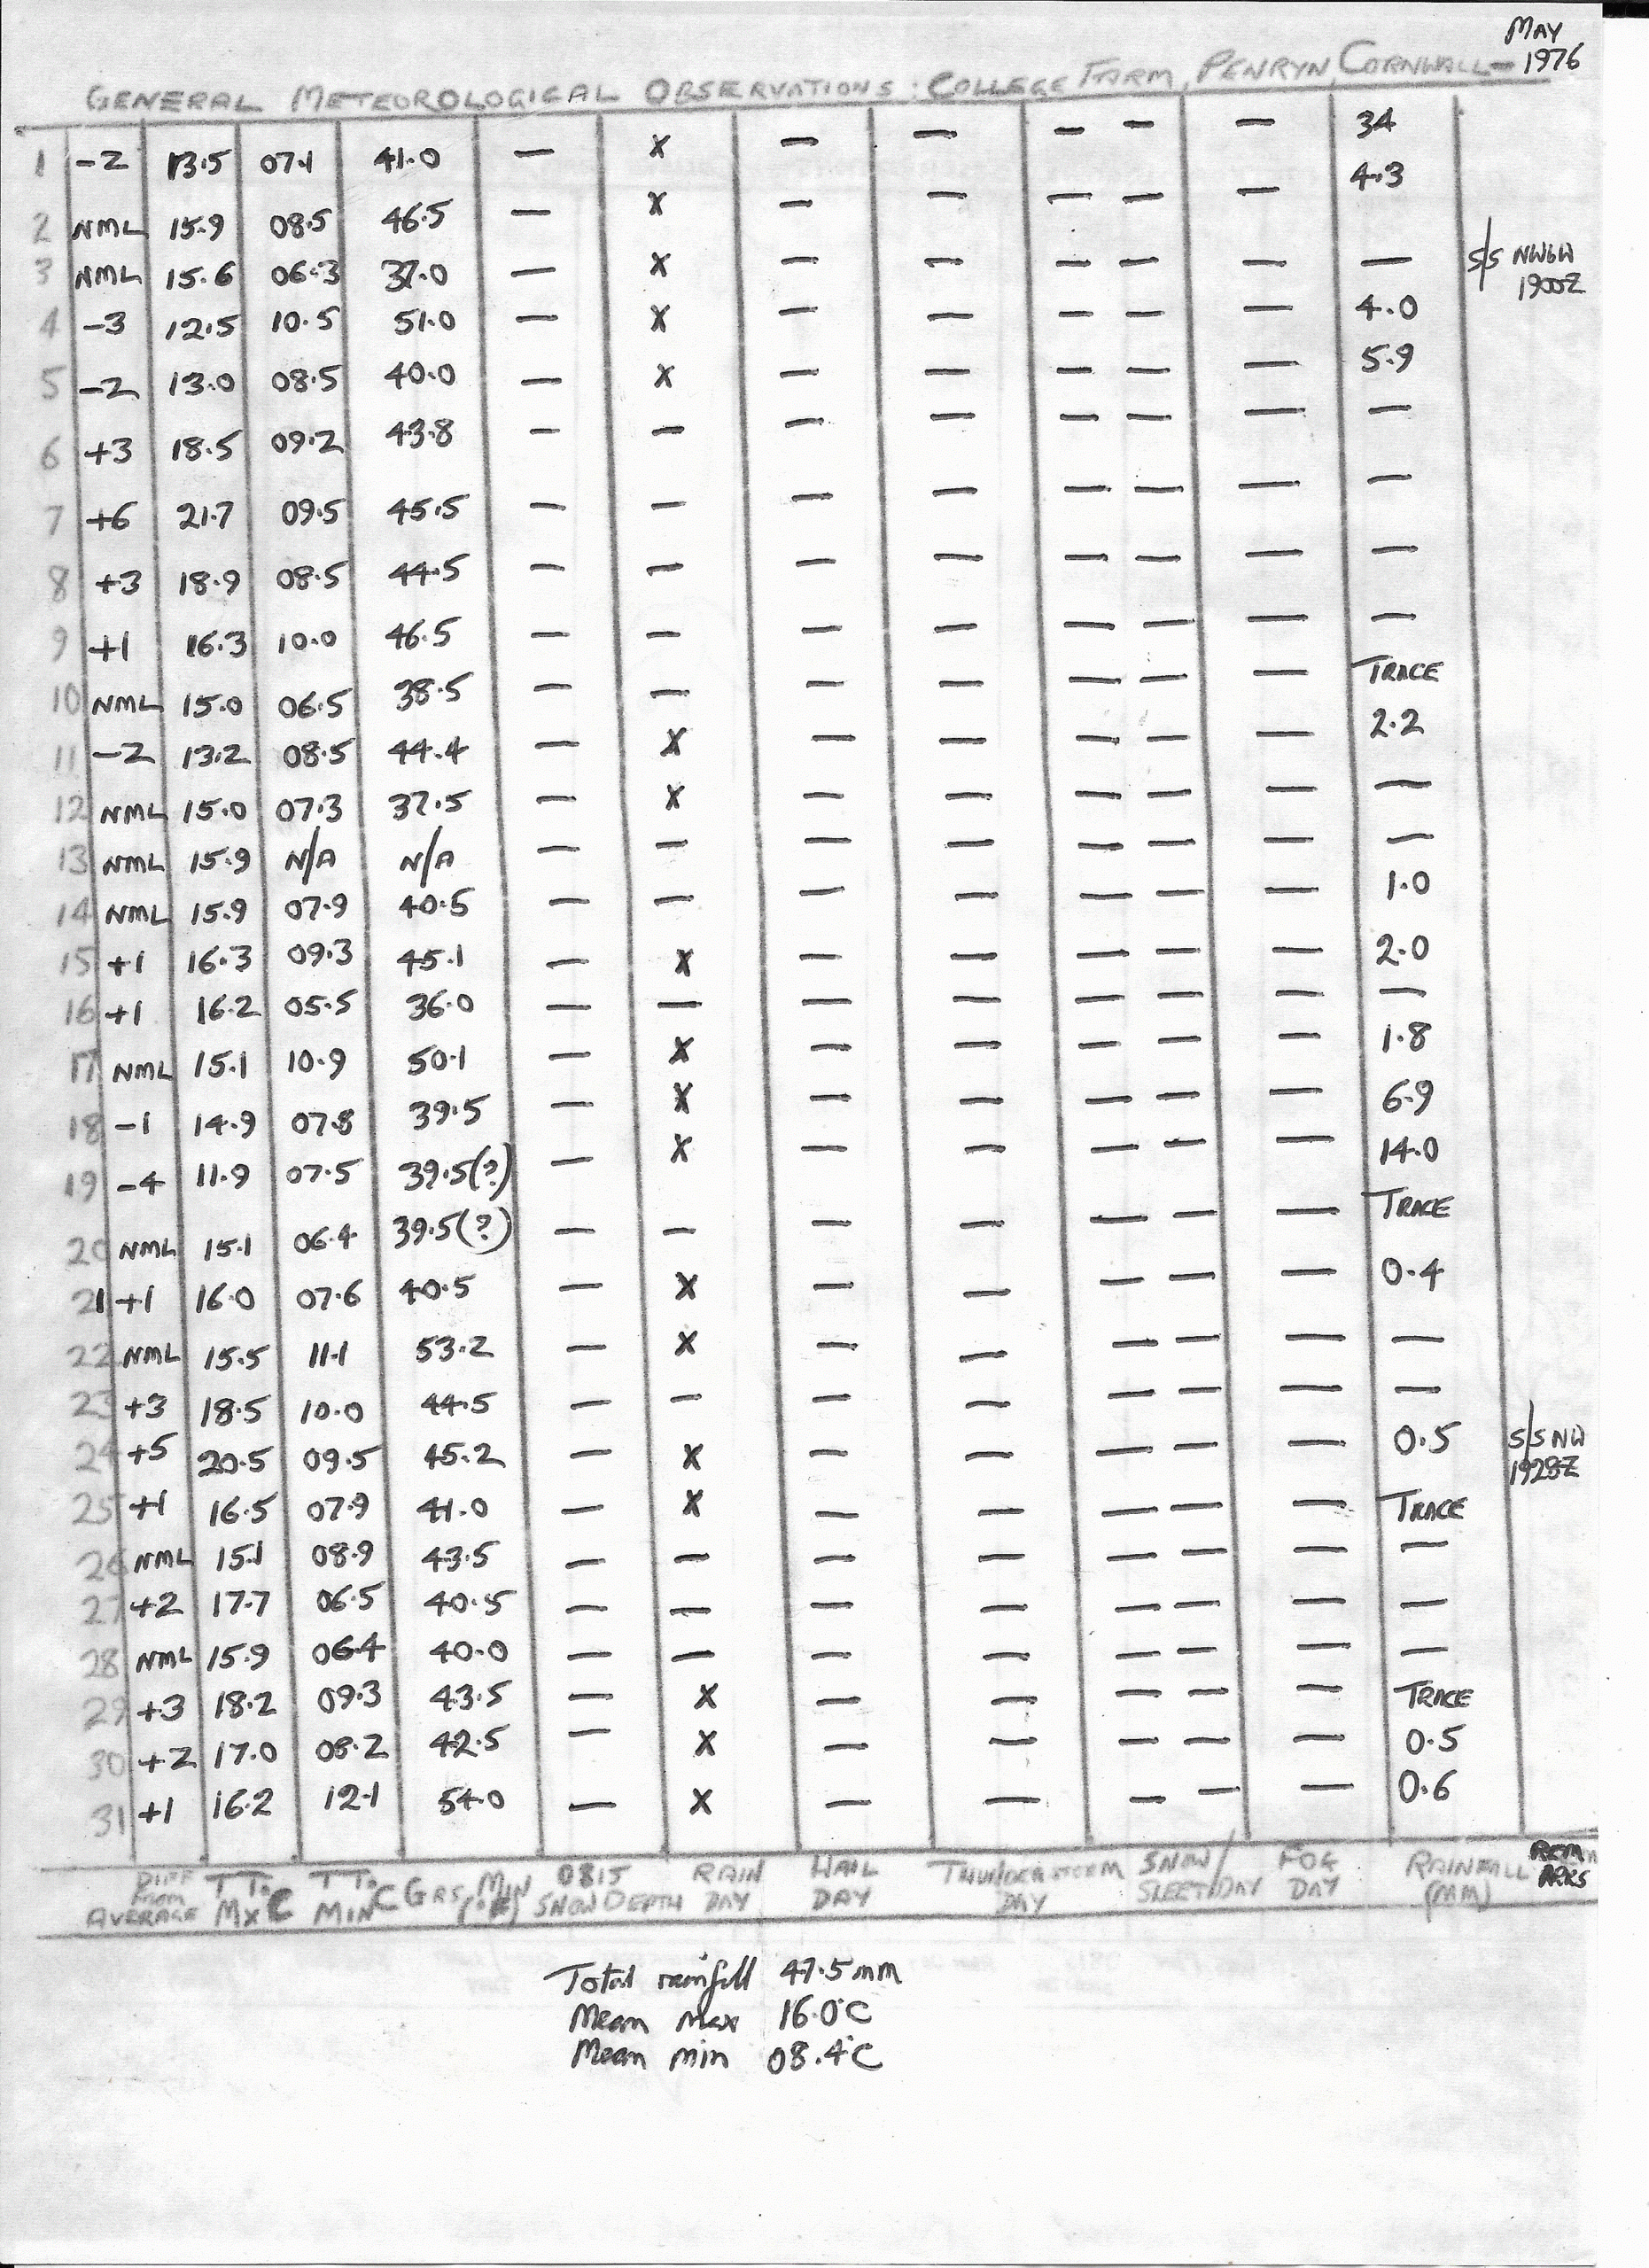 MAY
1976
GENERAL METEOROLOGICAL OBSERVATIONS: COLLEGE FARM, PENRYN, CORNWALL -
1 -2 13.5 07.1 41.0 — X — — — — — 34
2 NML 15.9 08.5 46.5 — X — — — — — 4.3
3 NML 15.6 06.3 37.0 — X — — — — — — S/S NWbW 1900Z
4 -3 12.5 10.5 51.0 — X — — — — — 4.0
5 -2 13.0 08.5 40.0 — X — — — — — 5.9
6 +3 18.5 09.2 43.8 — — — — — — — —
7 +6 21.7 09.5 45.5 — — — — — — — —
8 +3 18.9 08.5 44.5 — — — — — — — —
9 +1 16.3 10.0 46.5 — — — — — — — —
10 NML 15.0 06.5 38.5 — — — — — — — TRACE
11 -2 13.2 08.5 44.4 — X — — — — — 2.2
12 NML 15.0 07.3 37.5 — X — — — — — —
13 NML 15.9 N/A N/A — — — — — — — —
14 NML 15.9 07.9 40.5 — — — — — — — 1.0
15 +1 16.3 09.3 45.1 — X — — — — — 2.0
16 +1 16.2 05.5 36.0 — — — — — — — —
17 NML 15.1 10.9 50.1 — X — — — — — 1.8
18 -1 14.9 07.8 39.5 — X — — — — — 6.9
19 -4 11.9 07.5 39.5(?) — X — — — — — 14.0
20 NML 15.1 06.4 39.5(?) — — — — — — — TRACE
21 +1 16.0 07.6 40.5 — X — — — — — 0.4
22 NML 15.5 11.1 53.2 — X — — — — — —
23 +3 18.5 10.0 44.5 — — — — — — — —
24 +5 20.5 09.5 45.2 — X — — — — — 0.5 S/S NW 1928Z
25 +1 16.5 07.9 41.0 — X — — — — — TRACE
26 NML 15.1 08.9 43.5 — — — — — — — —
27 +2 17.7 06.5 40.5 — — — — — — — —
28 NML 15.9 06.4 40.0 — — — — — — — —
29 +3 18.2 09.3 43.5 — X — — — — — TRACE
30 +2 17.0 08.2 42.5 — X — — — — — 0.5
31 +1 16.2 12.1 54.0 — X — — — — — 0.6
DIFF FROM AVERAGE TTo MX C TTo MIN C GRS MIN (°F) 0815 SNOW DEPTH RAIN DAY HAIL DAY THUNDERSTORM DAY SNOW/ SLEET DAY FOG DAY RAINFALL (MM) REMARKS
Total rainfall 47.5mm
Mean max 16.0°C
Mean min 08.4°C